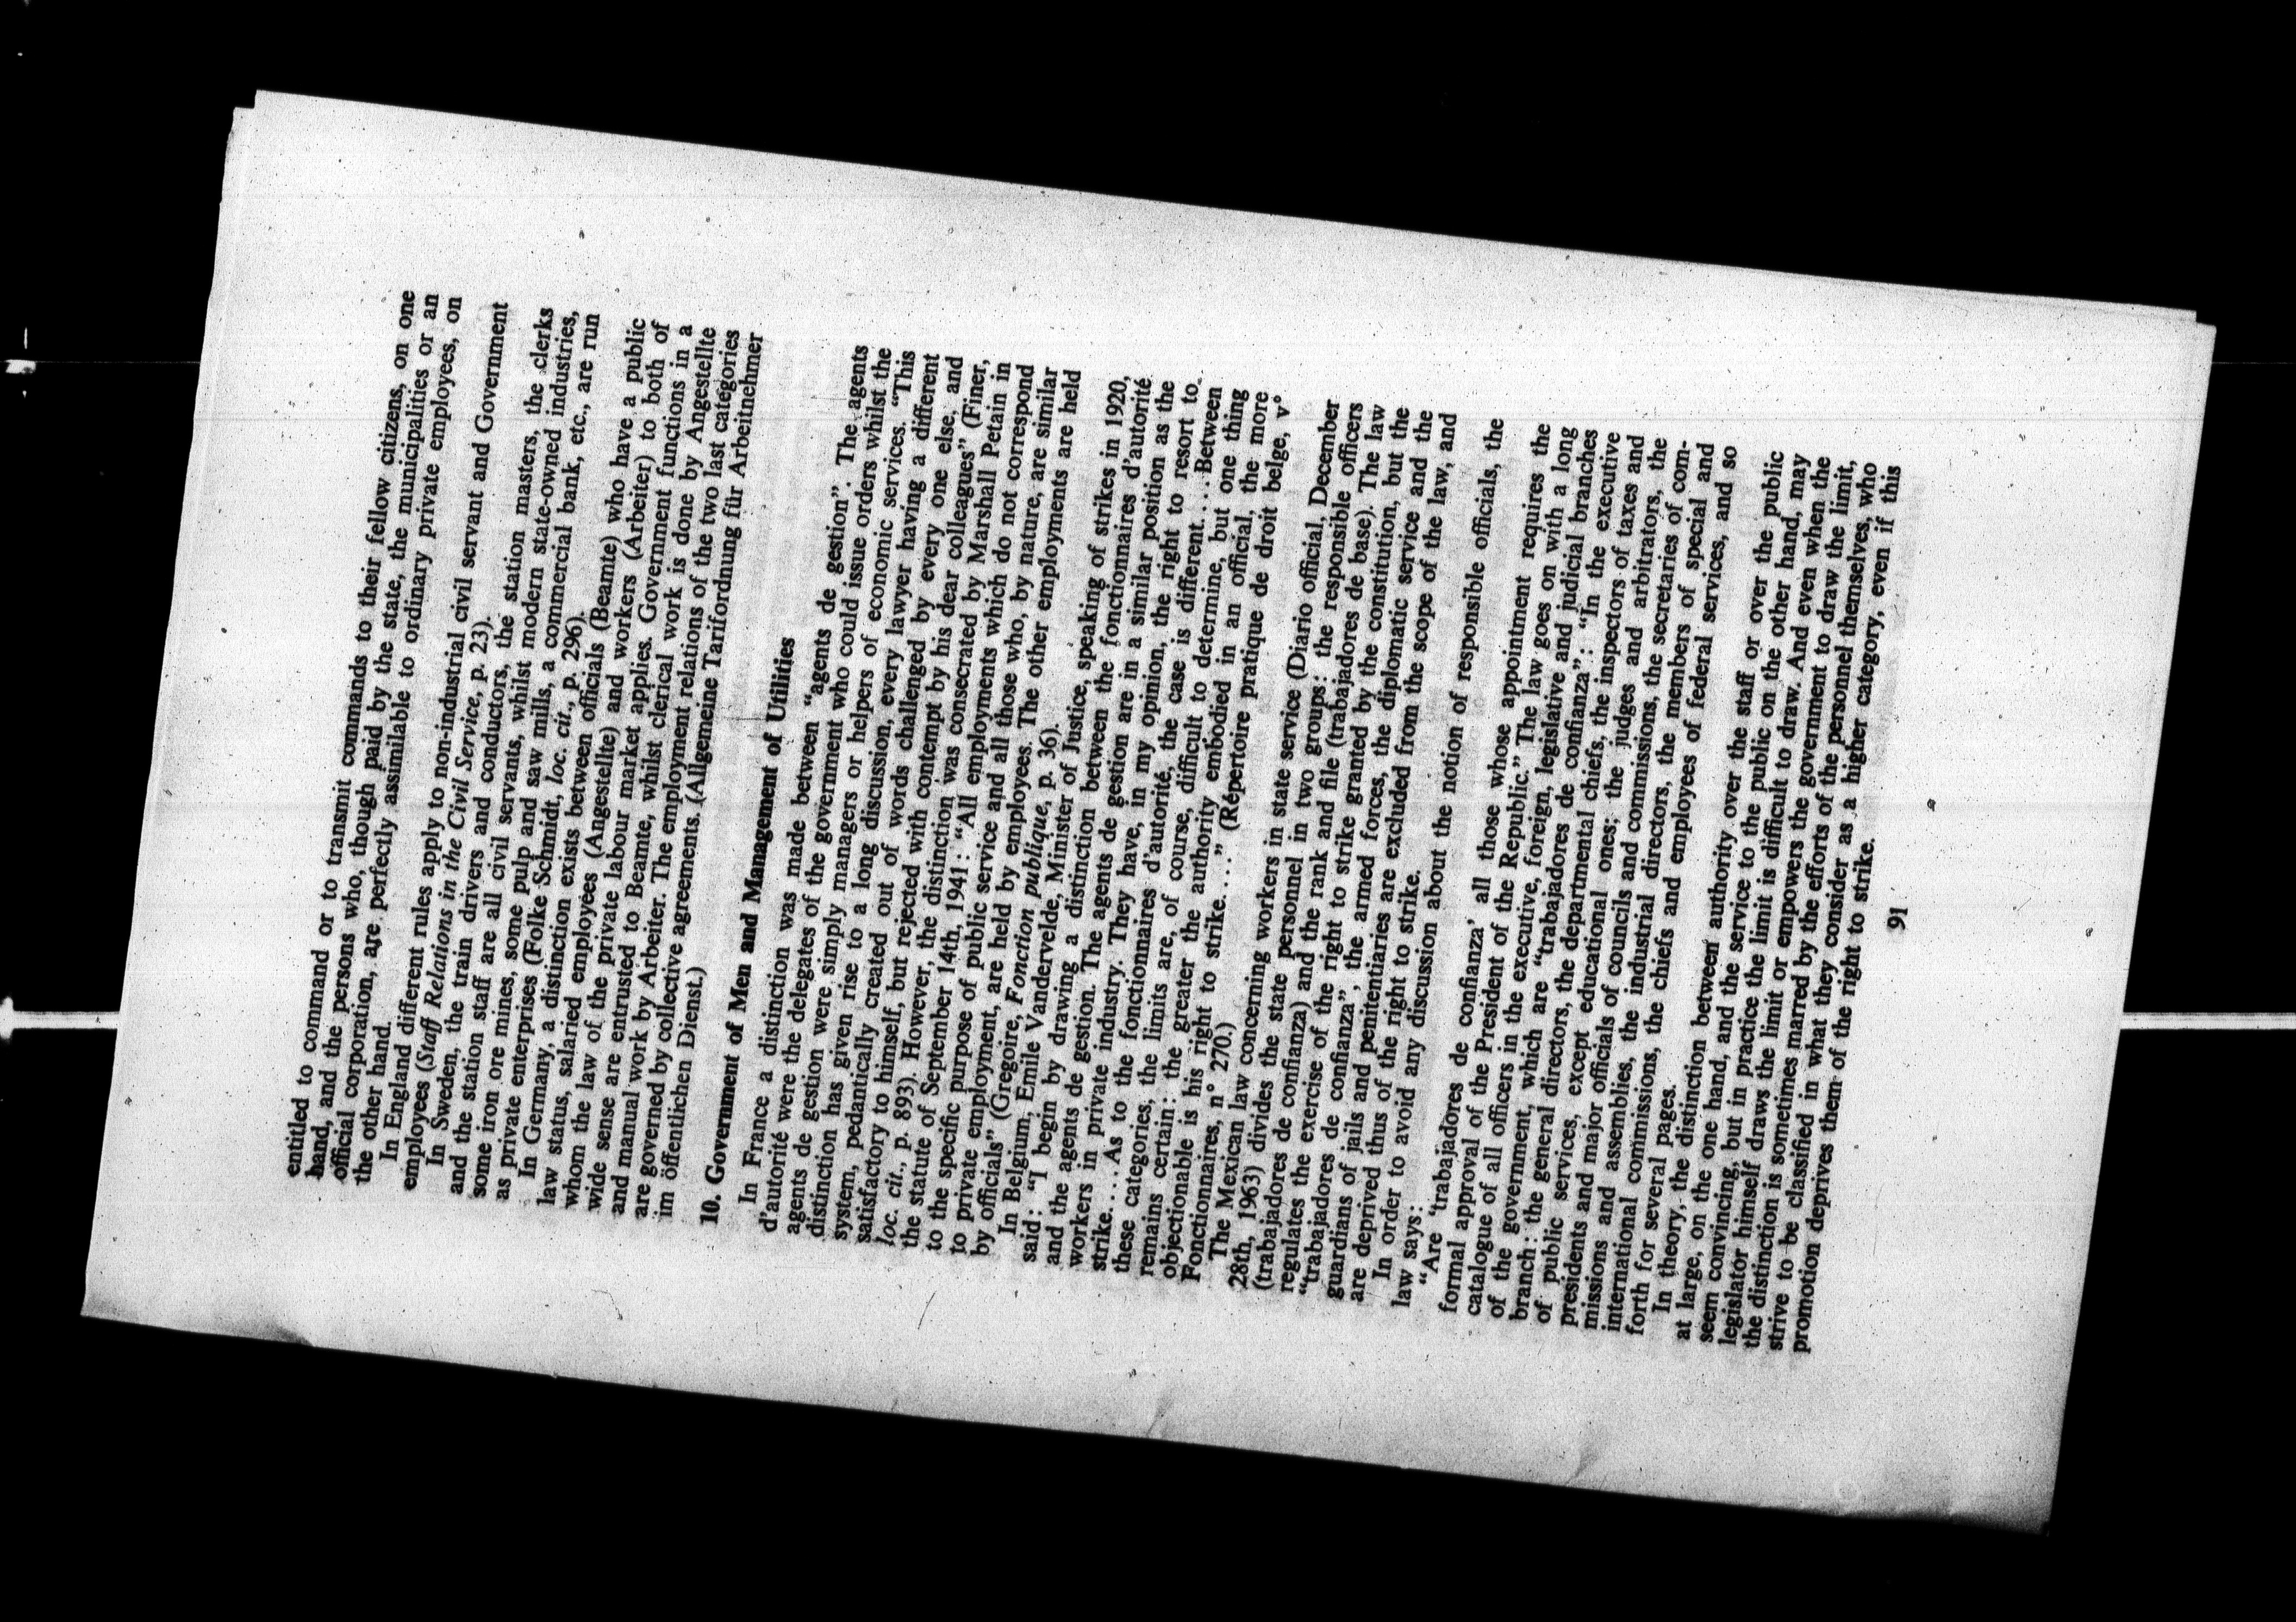 entitled to command or to transmit commands to their fellow citizens, on one
hand, and the persons who, though paid by the state, the municipalities or an
official corporation, are perfectly assimilable to ordinary private employees, on
the other hand.
In England different rules apply to non-industrial civil servant and Government
employees (Staff Relations in the Civil Service, p. 23).
In Sweden, the train drivers and conductors, the station masters, the clerks
and the station staff are all civil servants, whilst modern state-owned industries,
some iron ore mines, some pulp and saw mills, a commercial bank, etc., are run
as private enterprises (Folke Schmidt, loc. cit., p. 296).
In Germany, a distinction exists between officials (Beamte) who have a public
law status, salaried employees (Angestellte) and workers (Arbeiter) to both of
whom the law of the private labour market applies. Government functions in a
wide sense are entrusted to Beamte, whilst clerical work is done by Angestellte
and manual work by Arbeiter. The employment relations of the two last categories
are governed by collective agreements. (Allgemeine Tarifordnung für Arbeitnehmer
im öffentlichen Dienst.)
10. Government of Men and Management of Utilities
In France a distinction was made between "agents de gestion". The agents
d'autorité were the delegates of the government who could issue orders whilst the
agents de gestion were simply managers or helpers of economic services. "This
distinction has given rise to a long discussion, every lawyer having a different
system, pedantically created out of words challenged by every one else, and
satisfactory to himself, but rejected with contempt by his dear colleagues" (Finer,
loc. cit., p. 893). However, the distinction was consecrated by Marshall Petain in
the statute of September 14th, 1941: "All employments which do not correspond
to the specific purpose of public service and all those who, by nature, are similar
to private employment, are held by employees. The other employments are held
by officials" (Gregoire, Fonction publique, p. 36).
In Belgium, Emile Vandervelde, Minister of Justice, speaking of strikes in 1920,
said: "I begin by drawing a distinction between the fonctionnaires d'autorité
and the agents de gestion. The agents de gestion are in a similar position as the
workers in private industry. They have, in my opinion, the right to resort to
strike.... As to the fonctionnaires d'autorité, the case is different.... Between
these categories, the limits are, of course, difficult to determine, but one thing
remains certain: the greater the authority embodied in an official, the more
objectionable is his right to strike...." (Répertoire pratique de droit belge, v°
Fonctionnaires, n° 270.)
The Mexican law concerning workers in state service (Diario official, December
28th, 1963) divides the state personnel in two groups: the responsible officers
(trabajadores de confianza) and the rank and file (trabajadores de base). The law
regulates the exercise of the right to strike granted by the constitution, but the
"trabajadores de confianza", the armed forces, the diplomatic service and the
guardians of jails and penitentiaries are excluded from the scope of the law, and
are deprived thus of the right to strike.
In order to avoid any discussion about the notion of responsible officials, the
law says:
"Are 'trabajadores de confianza' all those whose appointment requires the
formal approval of the President of the Republic." The law goes on with a long
catalogue of all officers in the executive, foreign, legislative and judicial branches
of the government, which are "trabajadores de confianza": "In the executive
branch: the general directors, the departmental chiefs, the inspectors of taxes and
of public services, except educational ones; the judges and arbitrators, the
presidents and major officials of councils and commissions, the secretaries of com-
missions and assemblies, the industrial directors, the members of special and
international commissions, the chiefs and employees of federal services, and so
forth for several pages.
In theory, the distinction between authority over the staff or over the public
at large, on the one hand, and the service to the public on the other hand, may
seem convincing, but in practice the limit is difficult to draw. And even when the
legislator himself draws the limit or empowers the government to draw the limit,
the distinction is sometimes marred by the efforts of the personnel themselves, who
strive to be classified in what they consider as a higher category, even if this
promotion deprives them of the right to strike.
91